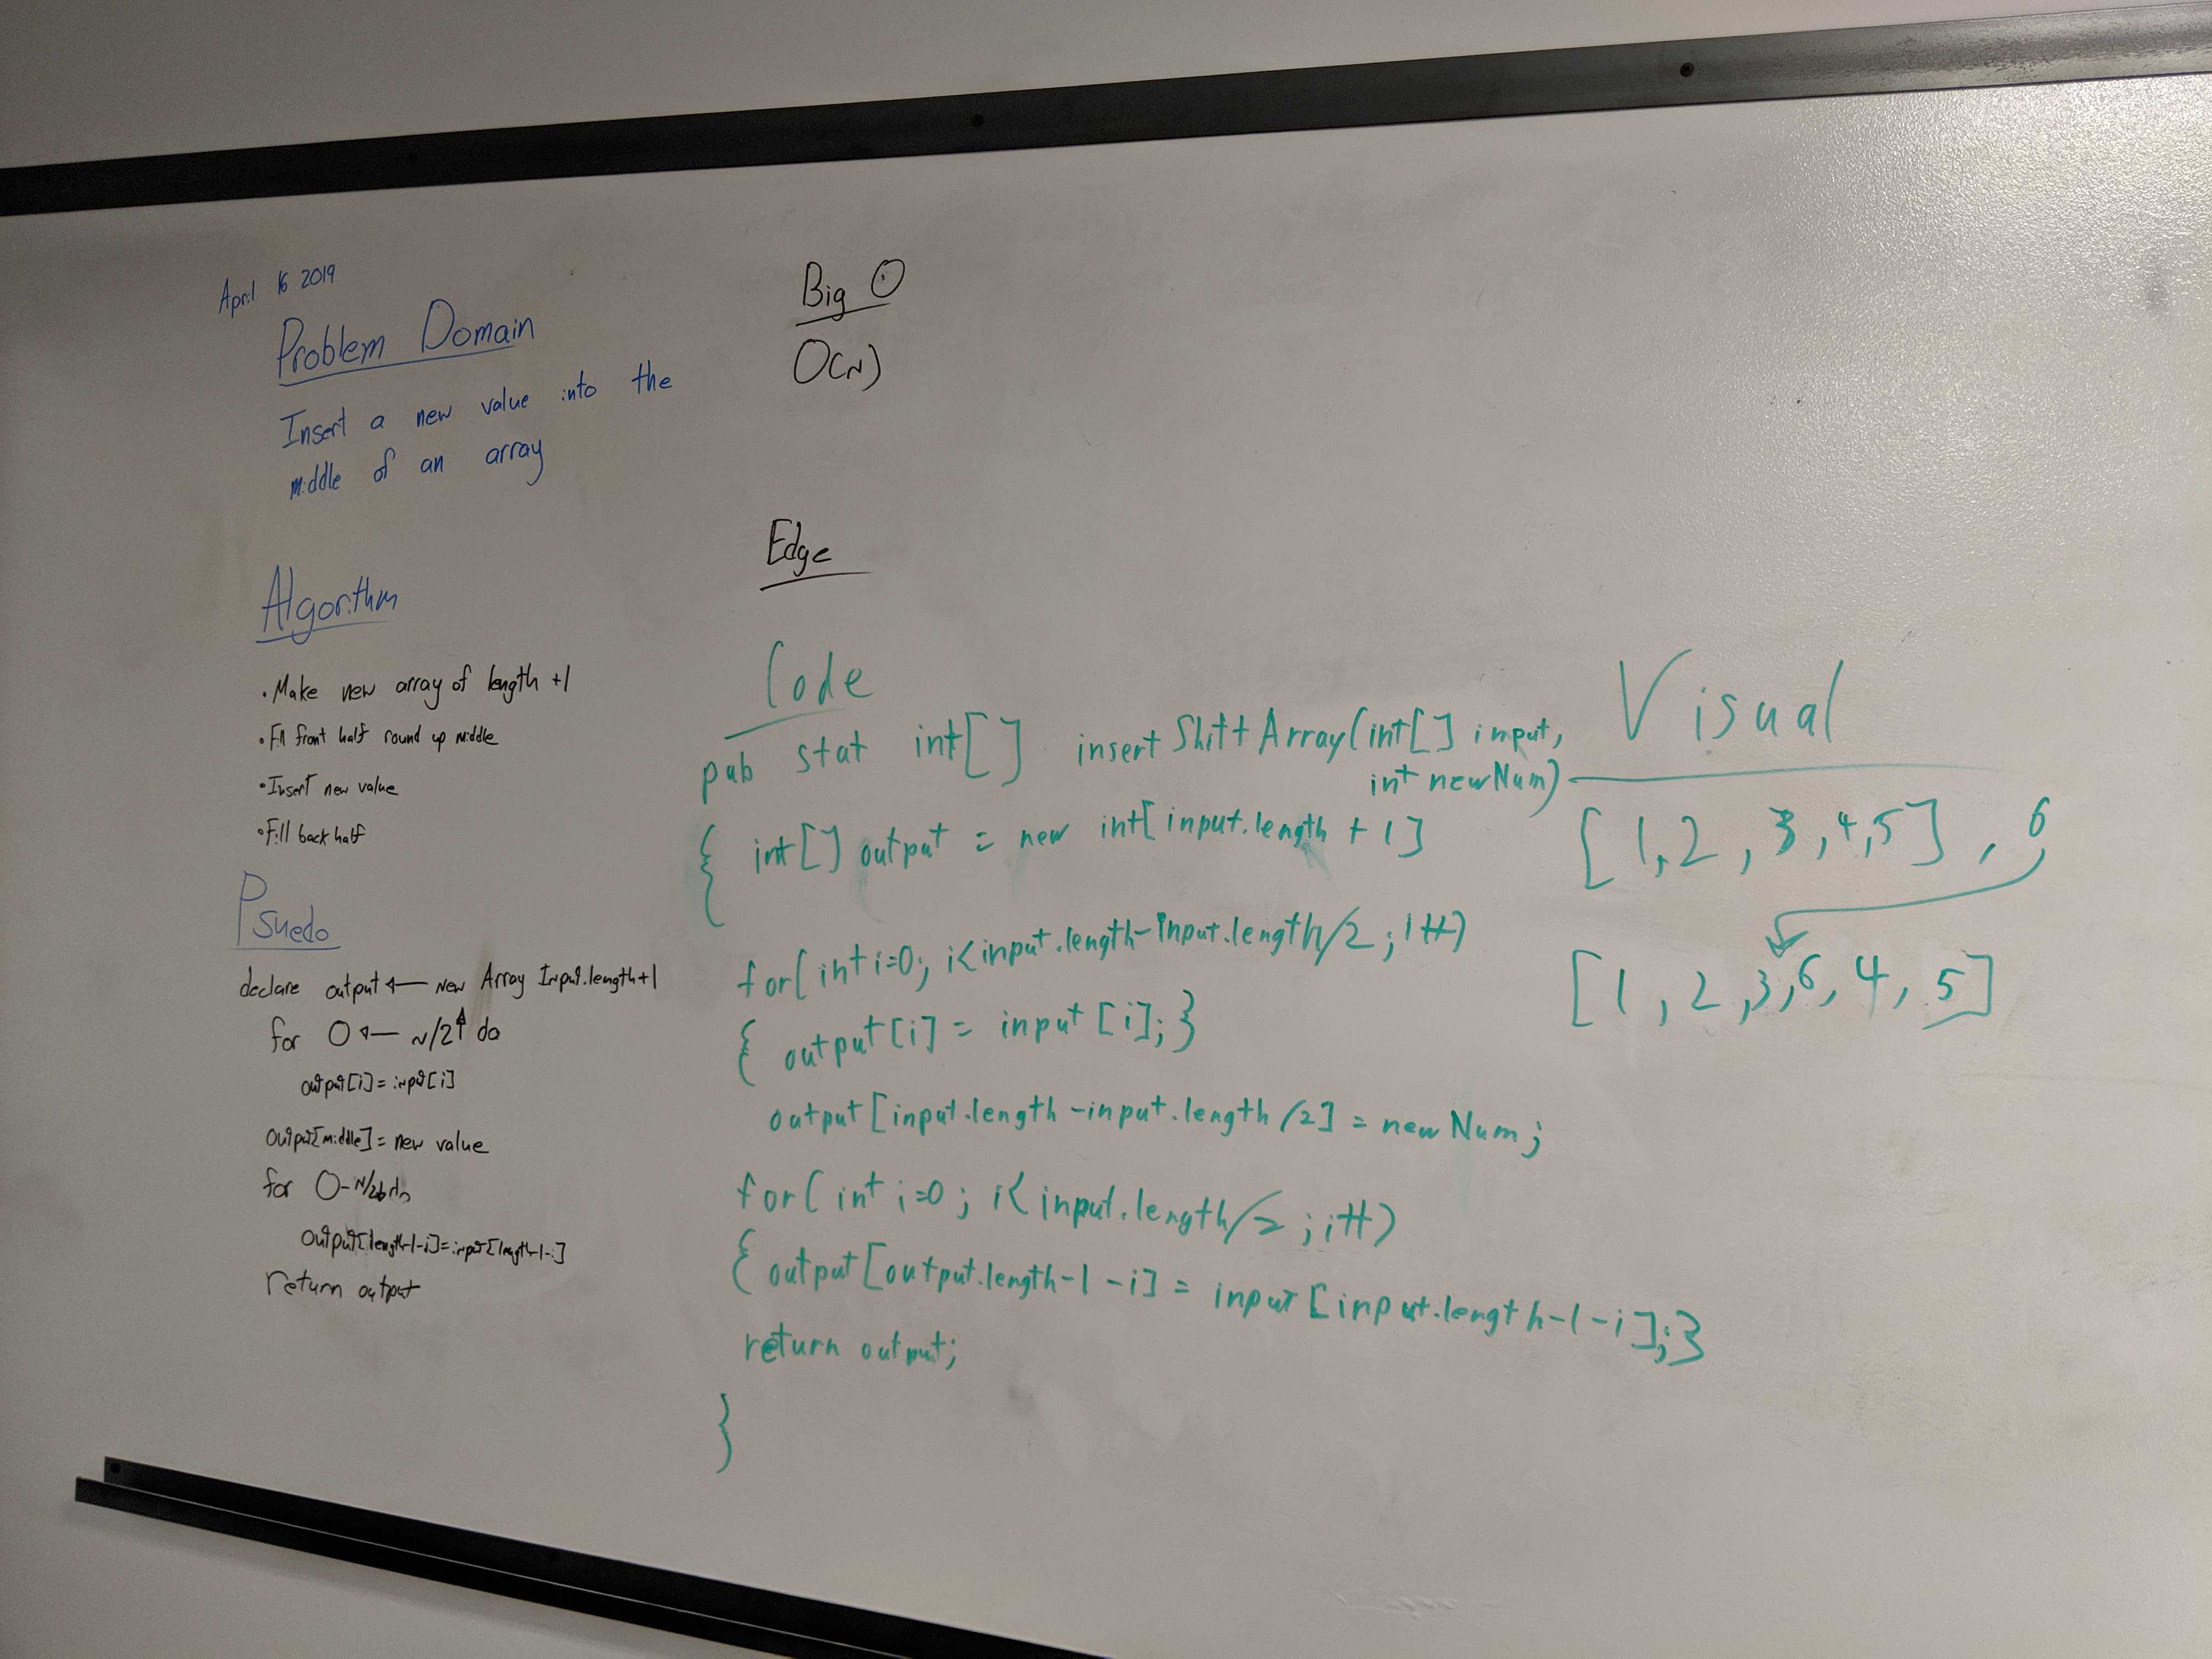 April 16 2019
Problem Domain
Insert a new value into the
middle of an array
Algorithm
• Make new array of length +1
• Fill front half round up middle
• Insert new value
• Fill back half
Psuedo
declare output ← new Array Input.length+1
for 0 ← N/2↑ do
output[i] = input[i]
output[middle] = new value
for 0 - N/2 do
output[length-1-i] = input[length-1-i]
return output
Big O
O(N)
Edge
Code
pub stat int[] insertShiftArray(int[] input,
int newNum)
{ int[] output = new int[input.length + 1]
for(int i=0; i<input.length-input.length/2; i++)
{ output[i] = input[i]; }
output[input.length-input.length/2] = newNum;
for(int i=0; i<input.length/2; i++)
{ output[output.length-1-i] = input[input.length-1-i]; }
return output;
}
Visual
[1,2,3,4,5], 6
[1,2,3,6,4,5]